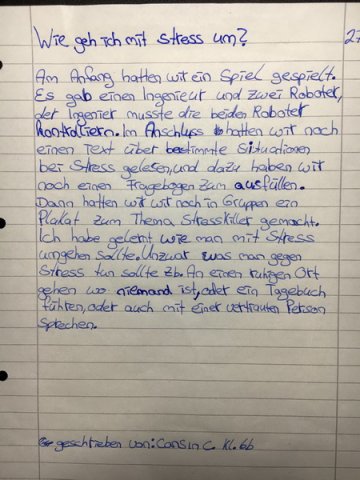 Wie geh ich mit Stress um?
27
Am Anfang hatten wir ein Spiel gespielt.
Es gab einen Ingenieur und zwei Roboter,
der Ingenier musste die beiden Roboter
kontrolliern. Im Anschluss hatten wir noch
einen Text über bestimmte Situationen
bei Stress gelesen, und dazu haben wir
noch einen Fragebogen zum ausfüllen.
Dann hatten wir wir noch in Gruppen ein
Plakat zum Thema Stresskiller gemacht.
Ich habe gelernt wie man mit Stress
umgehen sollte. Unzwar was man gegen
Stress tun sollte zb. An einen ruhigen Ort
gehen wo niemand ist, oder ein Tagebuch
führen, oder auch mit einer vertrauten Person
sprechen.
geschrieben von: Cansin C. Kl. 6b